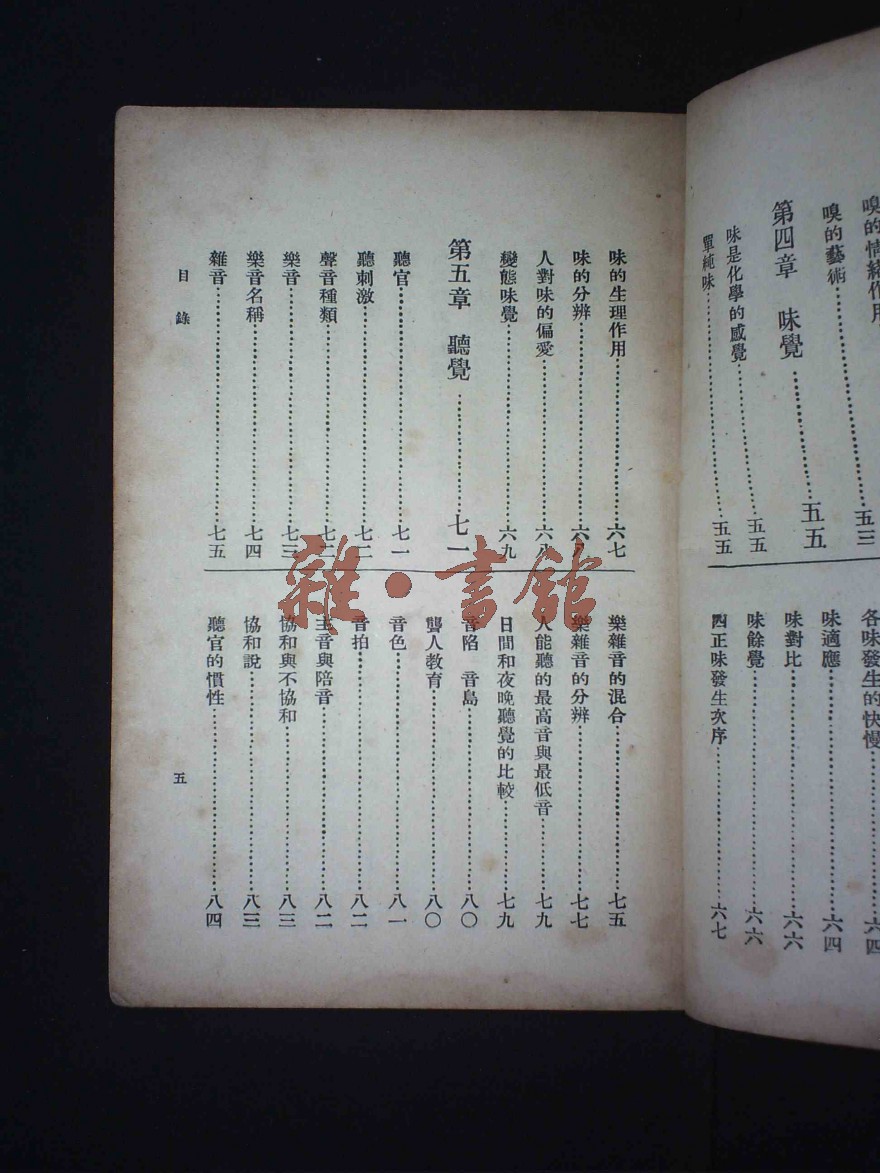 嗅的情緒作用
嗅的藝術……五三
第四章　味覺……五五
味是化學的感覺……五五
單純味……五五
各味發生的快慢……六四
味適應……六四
味對比……六六
味餘覺……六六
四正味發生次序……六七
味的生理作用……六七
味的分辨……六
人對味的偏愛……六八
變態味覺……六九
第五章　聽覺……七一
聽官……七一
聽刺激……七二
聲音種類……七二
樂音……七三
樂音名稱……七四
雜音……七五
樂雜音的混合……七五
樂雜音的分辨……七七
人能聽的最高音與最低音……七九
日間和夜晚聽覺的比較……七九
音陷　音島……八〇
聾人教育……八〇
音色……八一
音拍……八二
主音與陪音……八二
協和與不協和……八三
協和說……八三
聽官的慣性……八四
目錄
五
雜·書館